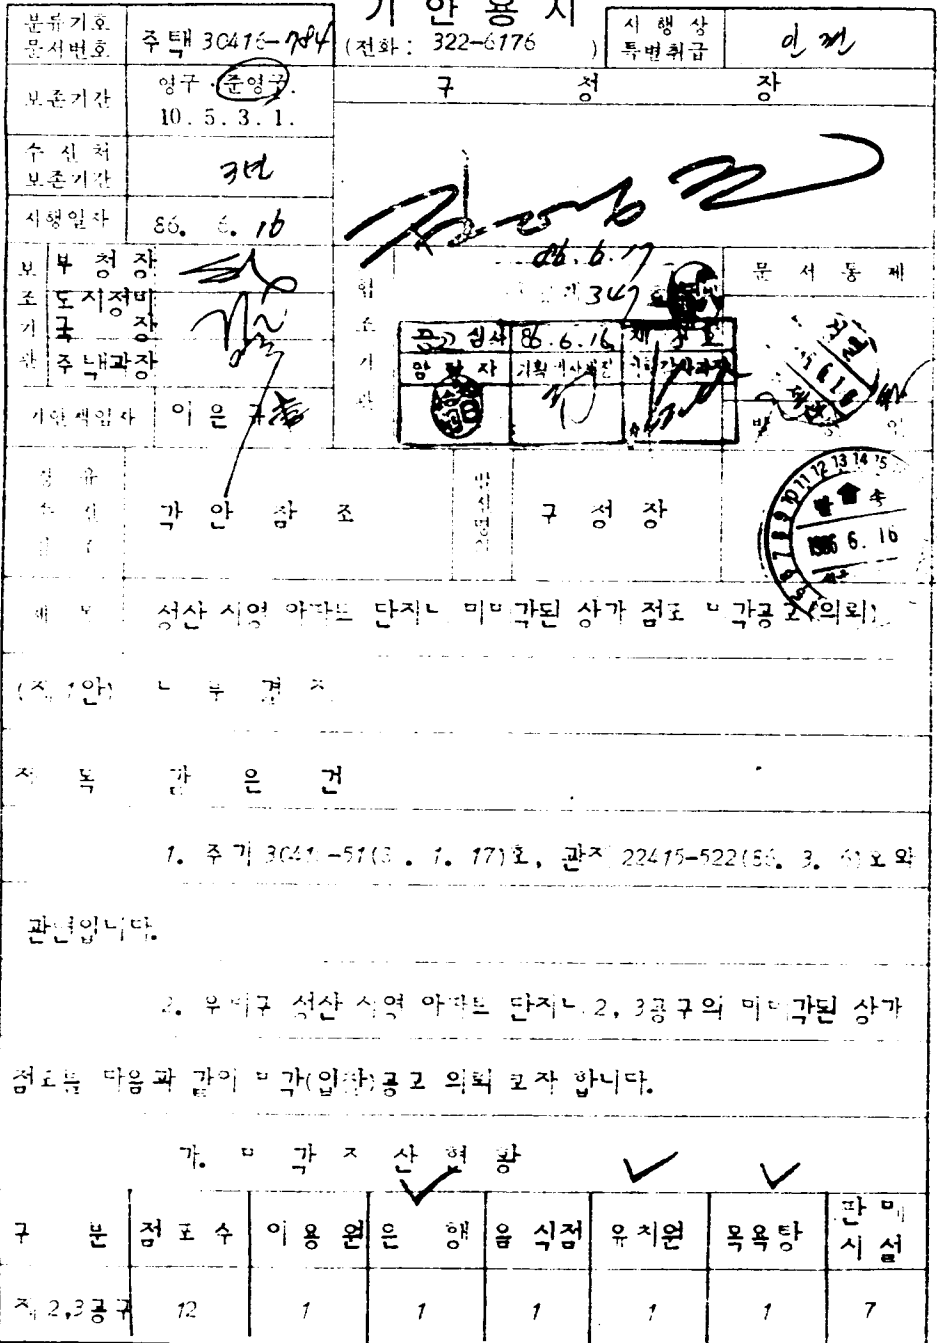 기 안 용 지
분류기호
문서번호
주택 30416-784
(전화: 322-6176 )
시 행 상
특별취급
보존기간
영구 · 준영구.
10. 5. 3. 1.
구 청 장
수 신 처
보존기간
3년
시행일자
86. 6. 16
86. 6. 17
보 조 기 관
부 청 장
도시정비
국 장
주택과장
협 조 기 관
347
문 서 통 제
공고 심사 86. 6. 16 제 호
담 당 자
기안책임자
이 은
경 유
수 신
참 조
각 안 참 조
발 신 명 의
구 청 장
발송
1986 6. 16
제 목
성산 시영 아파트 단지내 미매각된 상가 점포 매각공고(의뢰)
(제 1안) 내 부 결 재
제 목 같 은 건
1. 주기 3041 -51( . 1. 17)호, 관재 22415-522(86. 3. 6)호와
관련입니다.
2. 우리구 성산 시영 아파트 단지내 2, 3공구의 미매각된 상가
점포를 다음과 같이 매각(입찰)공고 의뢰 코자 합니다.
가. 매 각 재 산 현 황
구 분 점 포 수 이 용 원 은 행 음 식점 유 치원 목욕탕 판 매 시 설
제 2,3공구 12 1 1 1 1 1 7